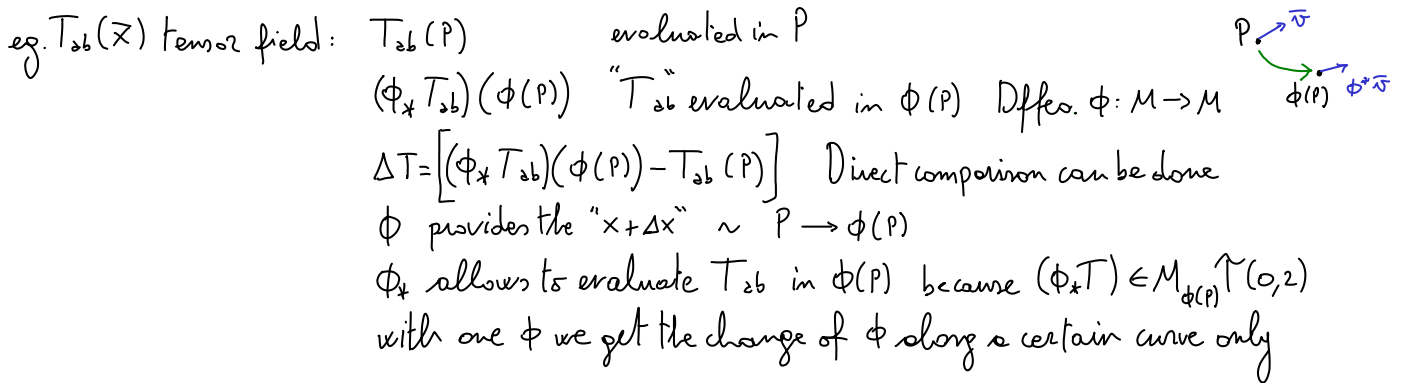 eg. T_ab(x̄) tensor field: T_ab(P) evaluated in P
P v̄
(ϕ_* T_ab)(ϕ(P)) "T_ab" evaluated in ϕ(P) Dffeo. ϕ: M → M
ϕ(P) ϕ* v̄
ΔT = [(ϕ_* T_ab)(ϕ(P)) − T_ab(P)] Direct comparison can be done
ϕ provides the "x+Δx" ~ P → ϕ(P)
ϕ_* allows to evaluate T_ab in ϕ(P) because (ϕ_*T) ∈ M_ϕ(P) T(0,2)
with one ϕ we get the change of ϕ along a certain curve only